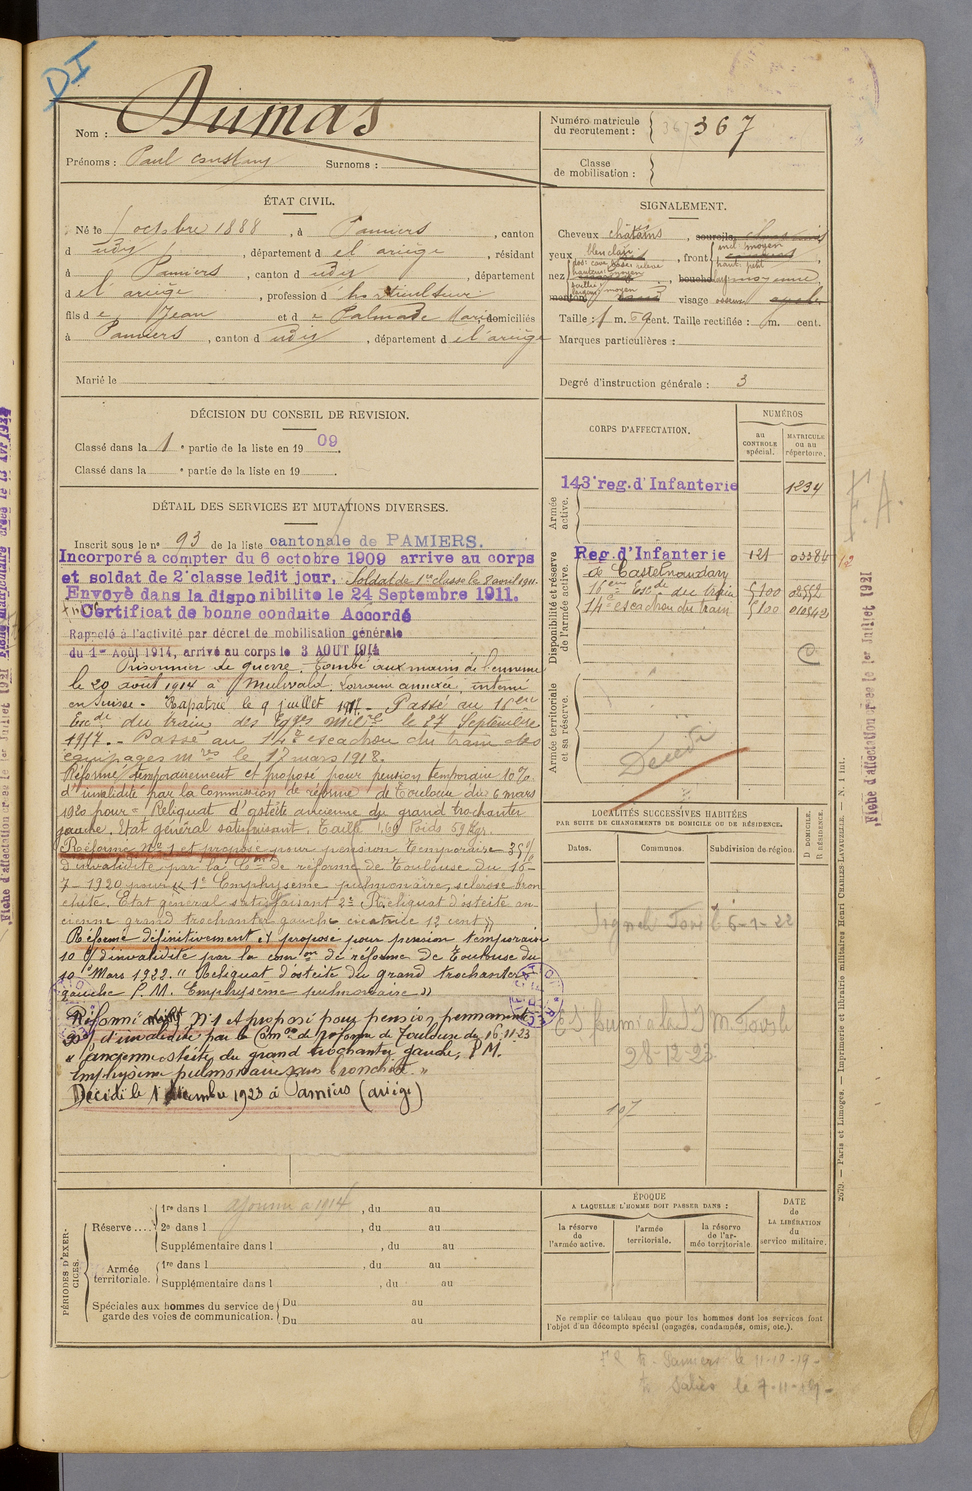 DI
Nom : Dumas
Prénoms : Paul Constant Surnoms :
Numéro matricule du recrutement : 367
Classe de mobilisation :
ÉTAT CIVIL.
Né le 1 octobre 1888, à Pamiers, canton
d udit, département de l'ariège, résidant
à Pamiers, canton d udit, département
de l'ariège, profession d'horticulteur
fils de Jean et de Palmade Marie domiciliés
à Pamiers, canton d udit, département de l'ariège
Marié le
SIGNALEMENT.
Cheveux châtains, sourcils
yeux bleu clair, front incl. moyen
haut. petit
nez dos: cave base: relevé
hauteur: moyen
saillie
largeur: moyen
bouche moyenne
menton visage
Taille : 1 m. 69 cent. Taille rectifiée : m. cent.
Marques particulières :
Degré d'instruction générale : 3
DÉCISION DU CONSEIL DE RÉVISION.
Classé dans la 1e partie de la liste en 1909.
Classé dans la e partie de la liste en 19 .
DÉTAIL DES SERVICES ET MUTATIONS DIVERSES.
Inscrit sous le no 93 de la liste cantonale de PAMIERS.
Incorporé a compter du 6 octobre 1909 arrive au corps
et soldat de 2e classe ledit jour. Soldat de 1re classe le 8 avril 1911.
Envoyé dans la disponibilite le 24 Septembre 1911.
Certificat de bonne conduite Accordé
Rappelé à l'activité par décret de mobilisation générale
du 1er Août 1914, arrivé au corps le 3 AOUT 1914
Prisonnier de guerre. Tombé aux mains de l'ennemi
le 20 août 1914 à Mulwald. Lorraine annexée interné
en Suisse. Rapatrié le 9 juillet 1917. Passé au 16eme
Escdr du train des Eqges milres le 27 Septembre
1917. Passé au 14e escadron du train des
équipages mres le 17 mars 1918.
Réformé temporairement et proposé pour pension temporaire 10%
d'invalidité par la Commission de réforme de Toulouse du 6 mars
1920 pour = Reliquat d'ostéite ancienne du grand trochanter
gauche. Etat général satisfaisant. Taille 1.69 Poids 59 Kgr.
Réformé No 1 et proposé pour pension temporaire 35%
d'invalidité par la Con de réforme de Toulouse du 16-
7-1920 pour « 1o Emphysème pulmonaire, sclérose bron
chite. Etat général satisfaisant 2o Reliquat d'ostéite an
cienne grand trochanter gauche cicatrice 12 cent »
Réformé définitivement et proposé pour pension temporaire
10 % d'invalidité par la comon de réforme de Toulouse du
10 Mars 1922. " Reliquat d'ostéite du grand trochanter
gauche P.M. Emphysème pulmonaire »
Réformé No 1 et proposé pour pension permanente
d'invalidité par la Comon de réforme de Toulouse du 16.11.23
" ancienne ostéite du grand trochanter gauche, P.M.
Emphysème pulmonaire sans bronchite. "
Décédé le 1 décembre 1923 à Pamiers (ariège)
CORPS D'AFFECTATION.
NUMÉROS
au CONTROLE spécial.
MATRICULE ou au répertoire.
Armée active.
143e reg. d'Infanterie 1234
Disponibilité et réserve de l'armée active.
Reg. d'Infanterie 121 03384
de Castelnaudary
16eme Escdr du train 5100 02552
14e escadron du train 5100 010542
Armée territoriale et sa réserve.
Décédé
LOCALITÉS SUCCESSIVES HABITÉES
PAR SUITE DE CHANGEMENTS DE DOMICILE OU DE RÉSIDENCE.
Dates. Communes. Subdivision de région. D DOMICILE. R RÉSIDENCE.
6-1-22
28-12-23
107
PÉRIODES D'EXERCICES.
Réserve .... 1re dans l ajourné à 1914, du au
2e dans l , du au
Supplémentaire dans l , du au
Armée territoriale. 1re dans l , du au
Supplémentaire dans l , du au
Spéciales aux hommes du service de garde des voies de communication. Du au
Du au
ÉPOQUE
A LAQUELLE L'HOMME DOIT PASSER DANS :
la réserve de l'armée active.
l'armée territoriale.
la réserve de l'armée territoriale
DATE de LA LIBÉRATION du service militaire.
Ne remplir ce tableau que pour les hommes dont les services font
l'objet d'un décompte spécial (engagés, condamnés, omis, etc.).
Pamiers le 11-10-19-
le 7-11-19-
F.A.
Fiche d'affectation créée le 1er Juillet 1921
2679. — Paris et Limoges. — Imprimerie et librairie militaires Henri CHARLES-LAVAUZELLE. — N. 1 int.